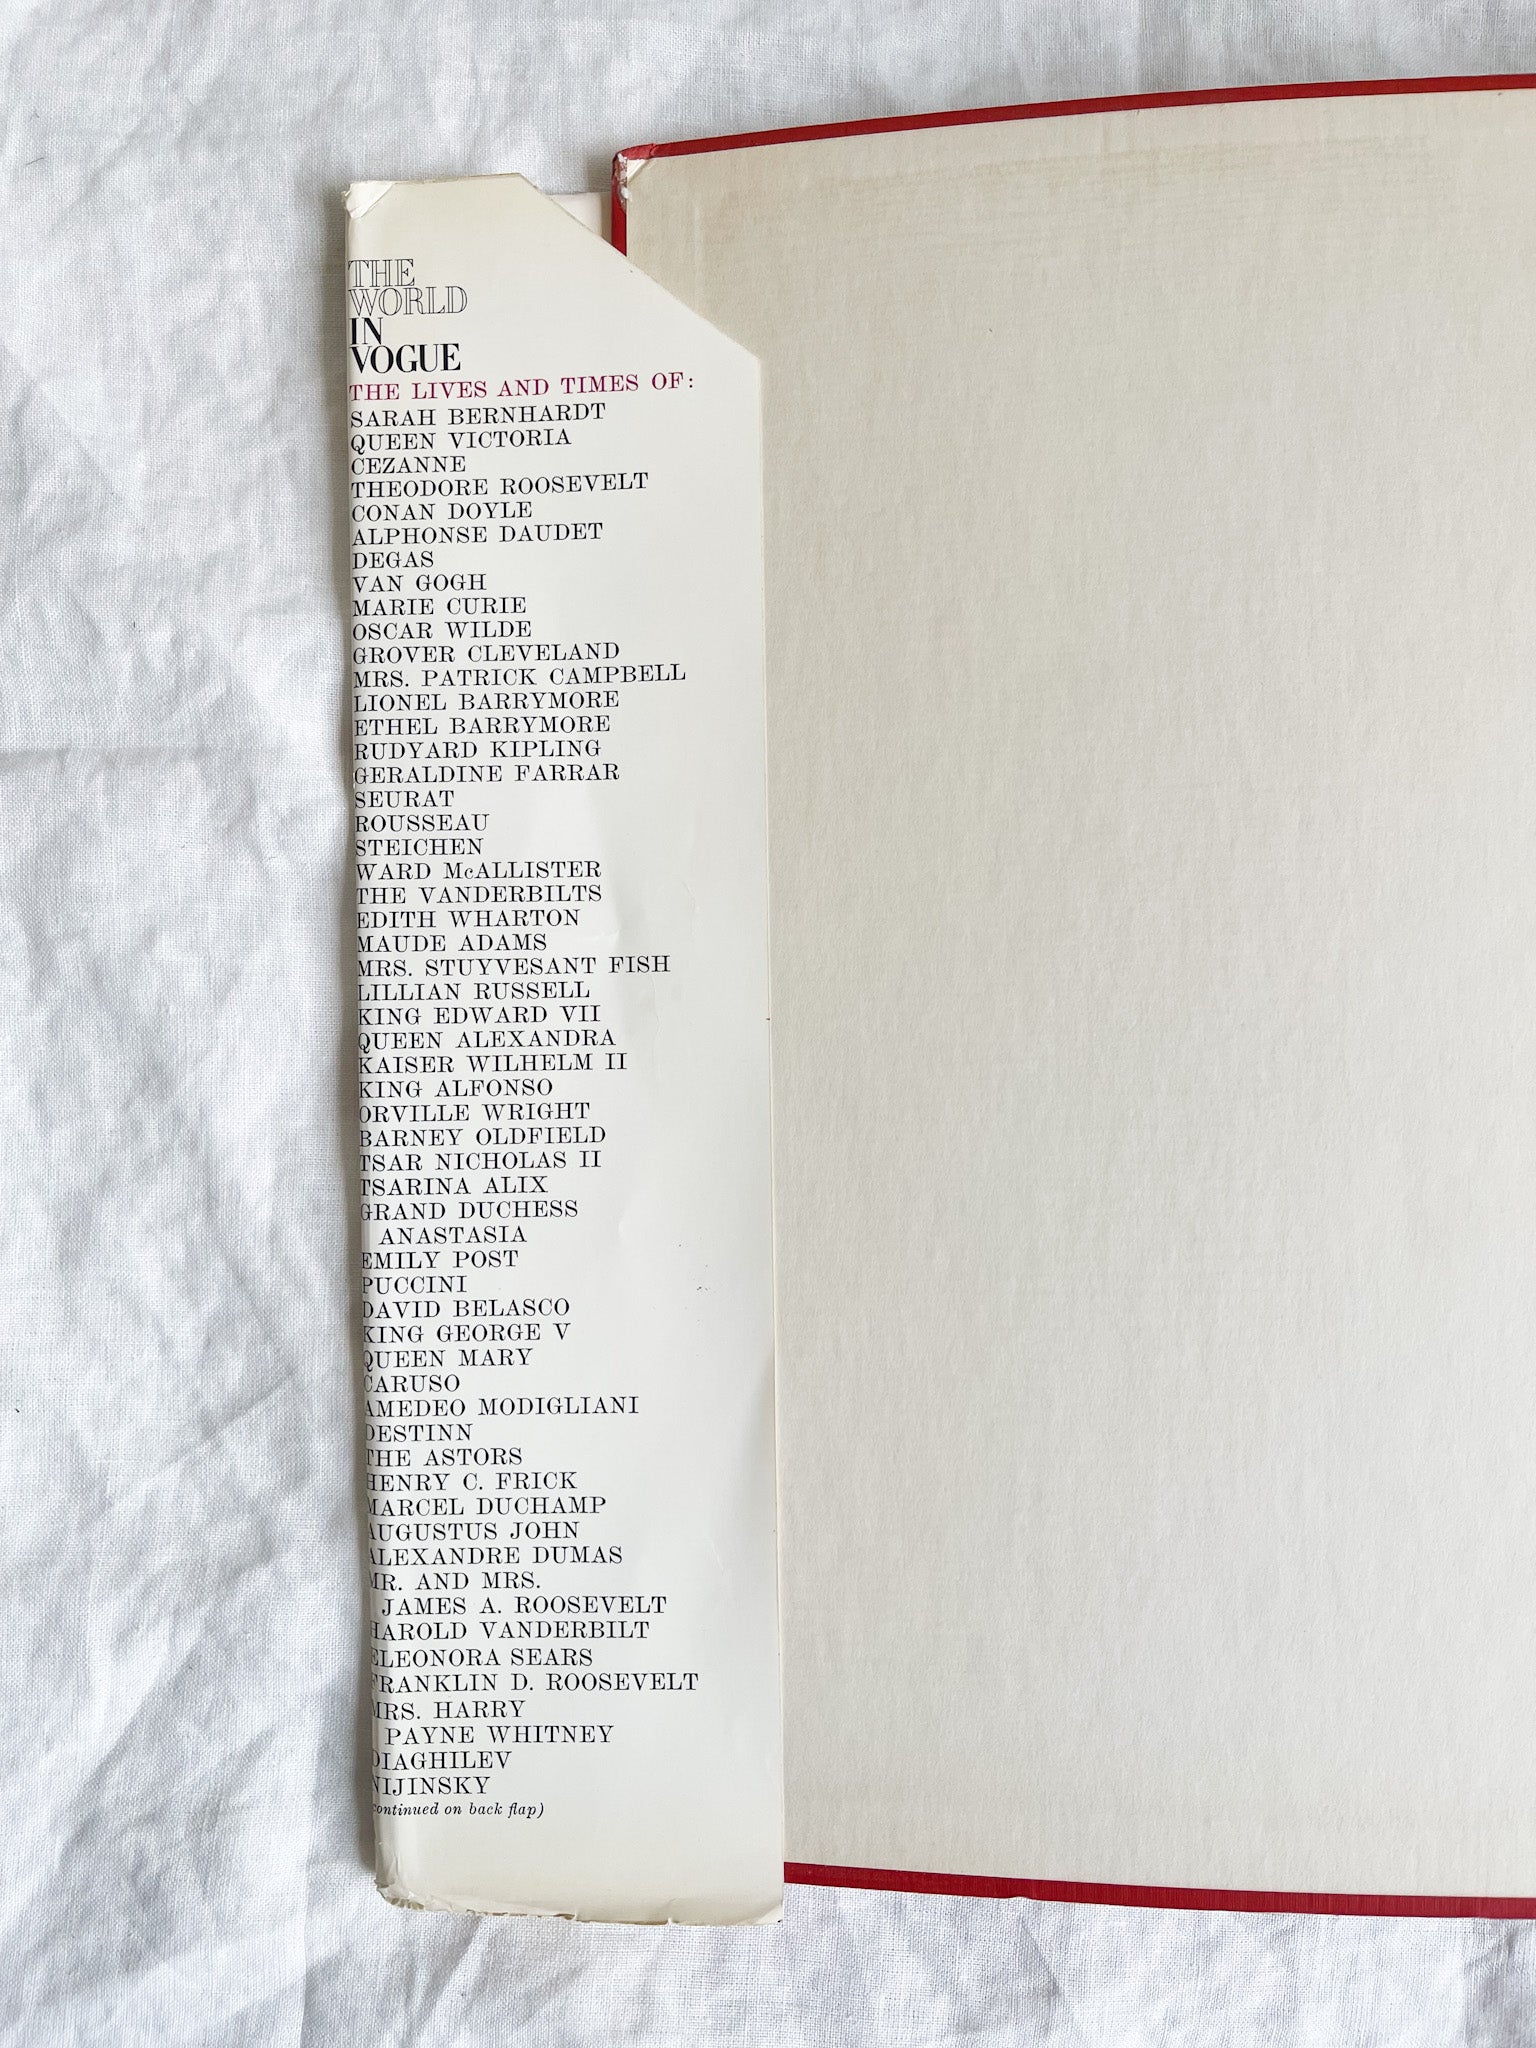 THE
WORLD
IN
VOGUE
THE LIVES AND TIMES OF:
SARAH BERNHARDT
QUEEN VICTORIA
CEZANNE
THEODORE ROOSEVELT
CONAN DOYLE
ALPHONSE DAUDET
DEGAS
VAN GOGH
MARIE CURIE
OSCAR WILDE
GROVER CLEVELAND
MRS. PATRICK CAMPBELL
LIONEL BARRYMORE
ETHEL BARRYMORE
RUDYARD KIPLING
GERALDINE FARRAR
SEURAT
ROUSSEAU
STEICHEN
WARD McALLISTER
THE VANDERBILTS
EDITH WHARTON
MAUDE ADAMS
MRS. STUYVESANT FISH
LILLIAN RUSSELL
KING EDWARD VII
QUEEN ALEXANDRA
KAISER WILHELM II
KING ALFONSO
ORVILLE WRIGHT
BARNEY OLDFIELD
TSAR NICHOLAS II
TSARINA ALIX
GRAND DUCHESS
ANASTASIA
EMILY POST
PUCCINI
DAVID BELASCO
KING GEORGE V
QUEEN MARY
CARUSO
AMEDEO MODIGLIANI
DESTINN
THE ASTORS
HENRY C. FRICK
MARCEL DUCHAMP
AUGUSTUS JOHN
ALEXANDRE DUMAS
MR. AND MRS.
JAMES A. ROOSEVELT
HAROLD VANDERBILT
ELEONORA SEARS
FRANKLIN D. ROOSEVELT
MRS. HARRY
PAYNE WHITNEY
DIAGHILEV
NIJINSKY
continued on back flap)